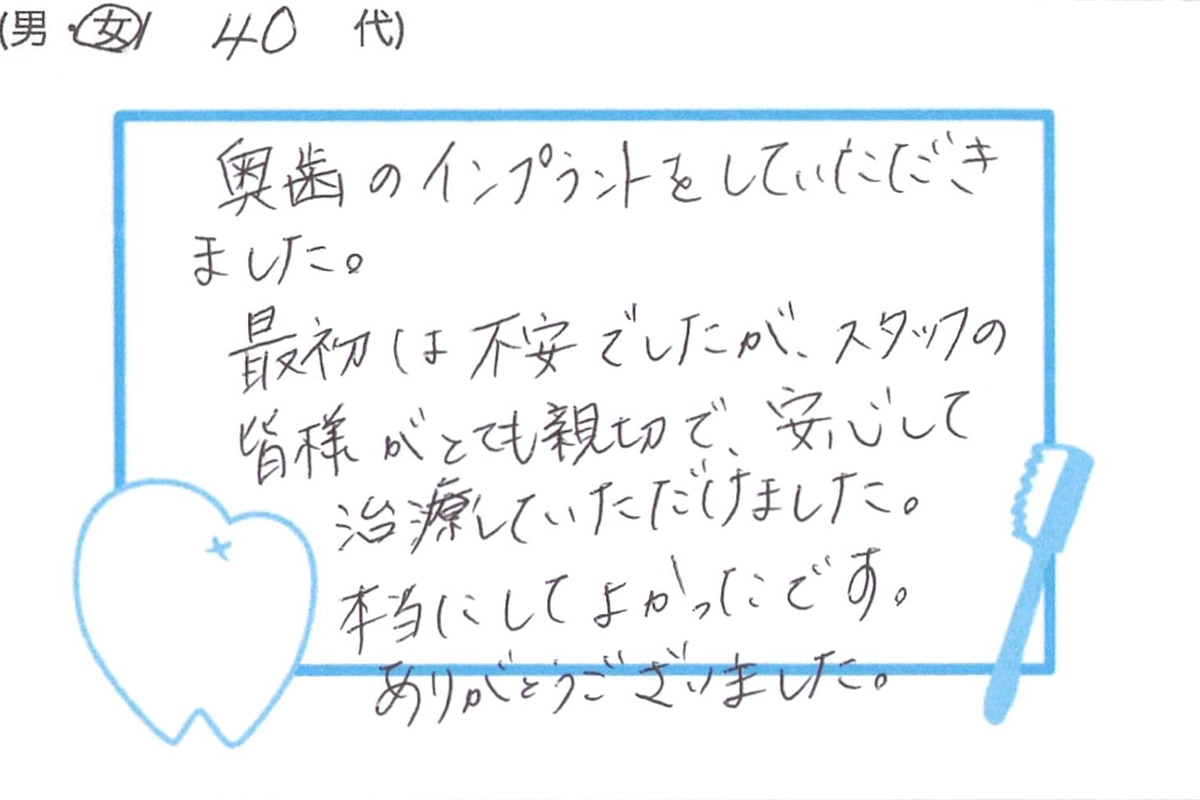 (男・女) 40 代)
奥歯のインプラントをしていただき
ました。
最初は不安でしたが、スタッフの
皆様がとても親切で、安心して
治療していただけました。
本当にしてよかったです。
ありがとうございました。